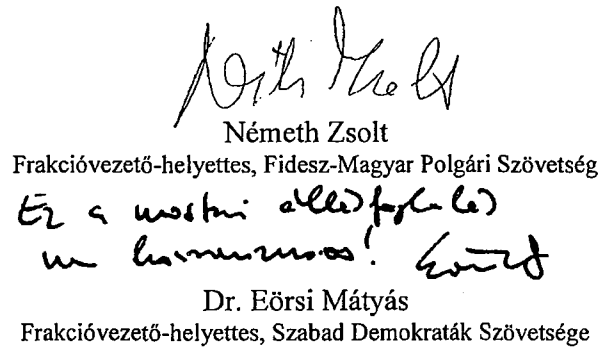 Németh Zsolt
Németh Zsolt
Frakcióvezető-helyettes, Fidesz-Magyar Polgári Szövetség
Ez a mostani állásfoglalás
Dr. Eörsi Mátyás
Frakcióvezető-helyettes, Szabad Demokraták Szövetsége